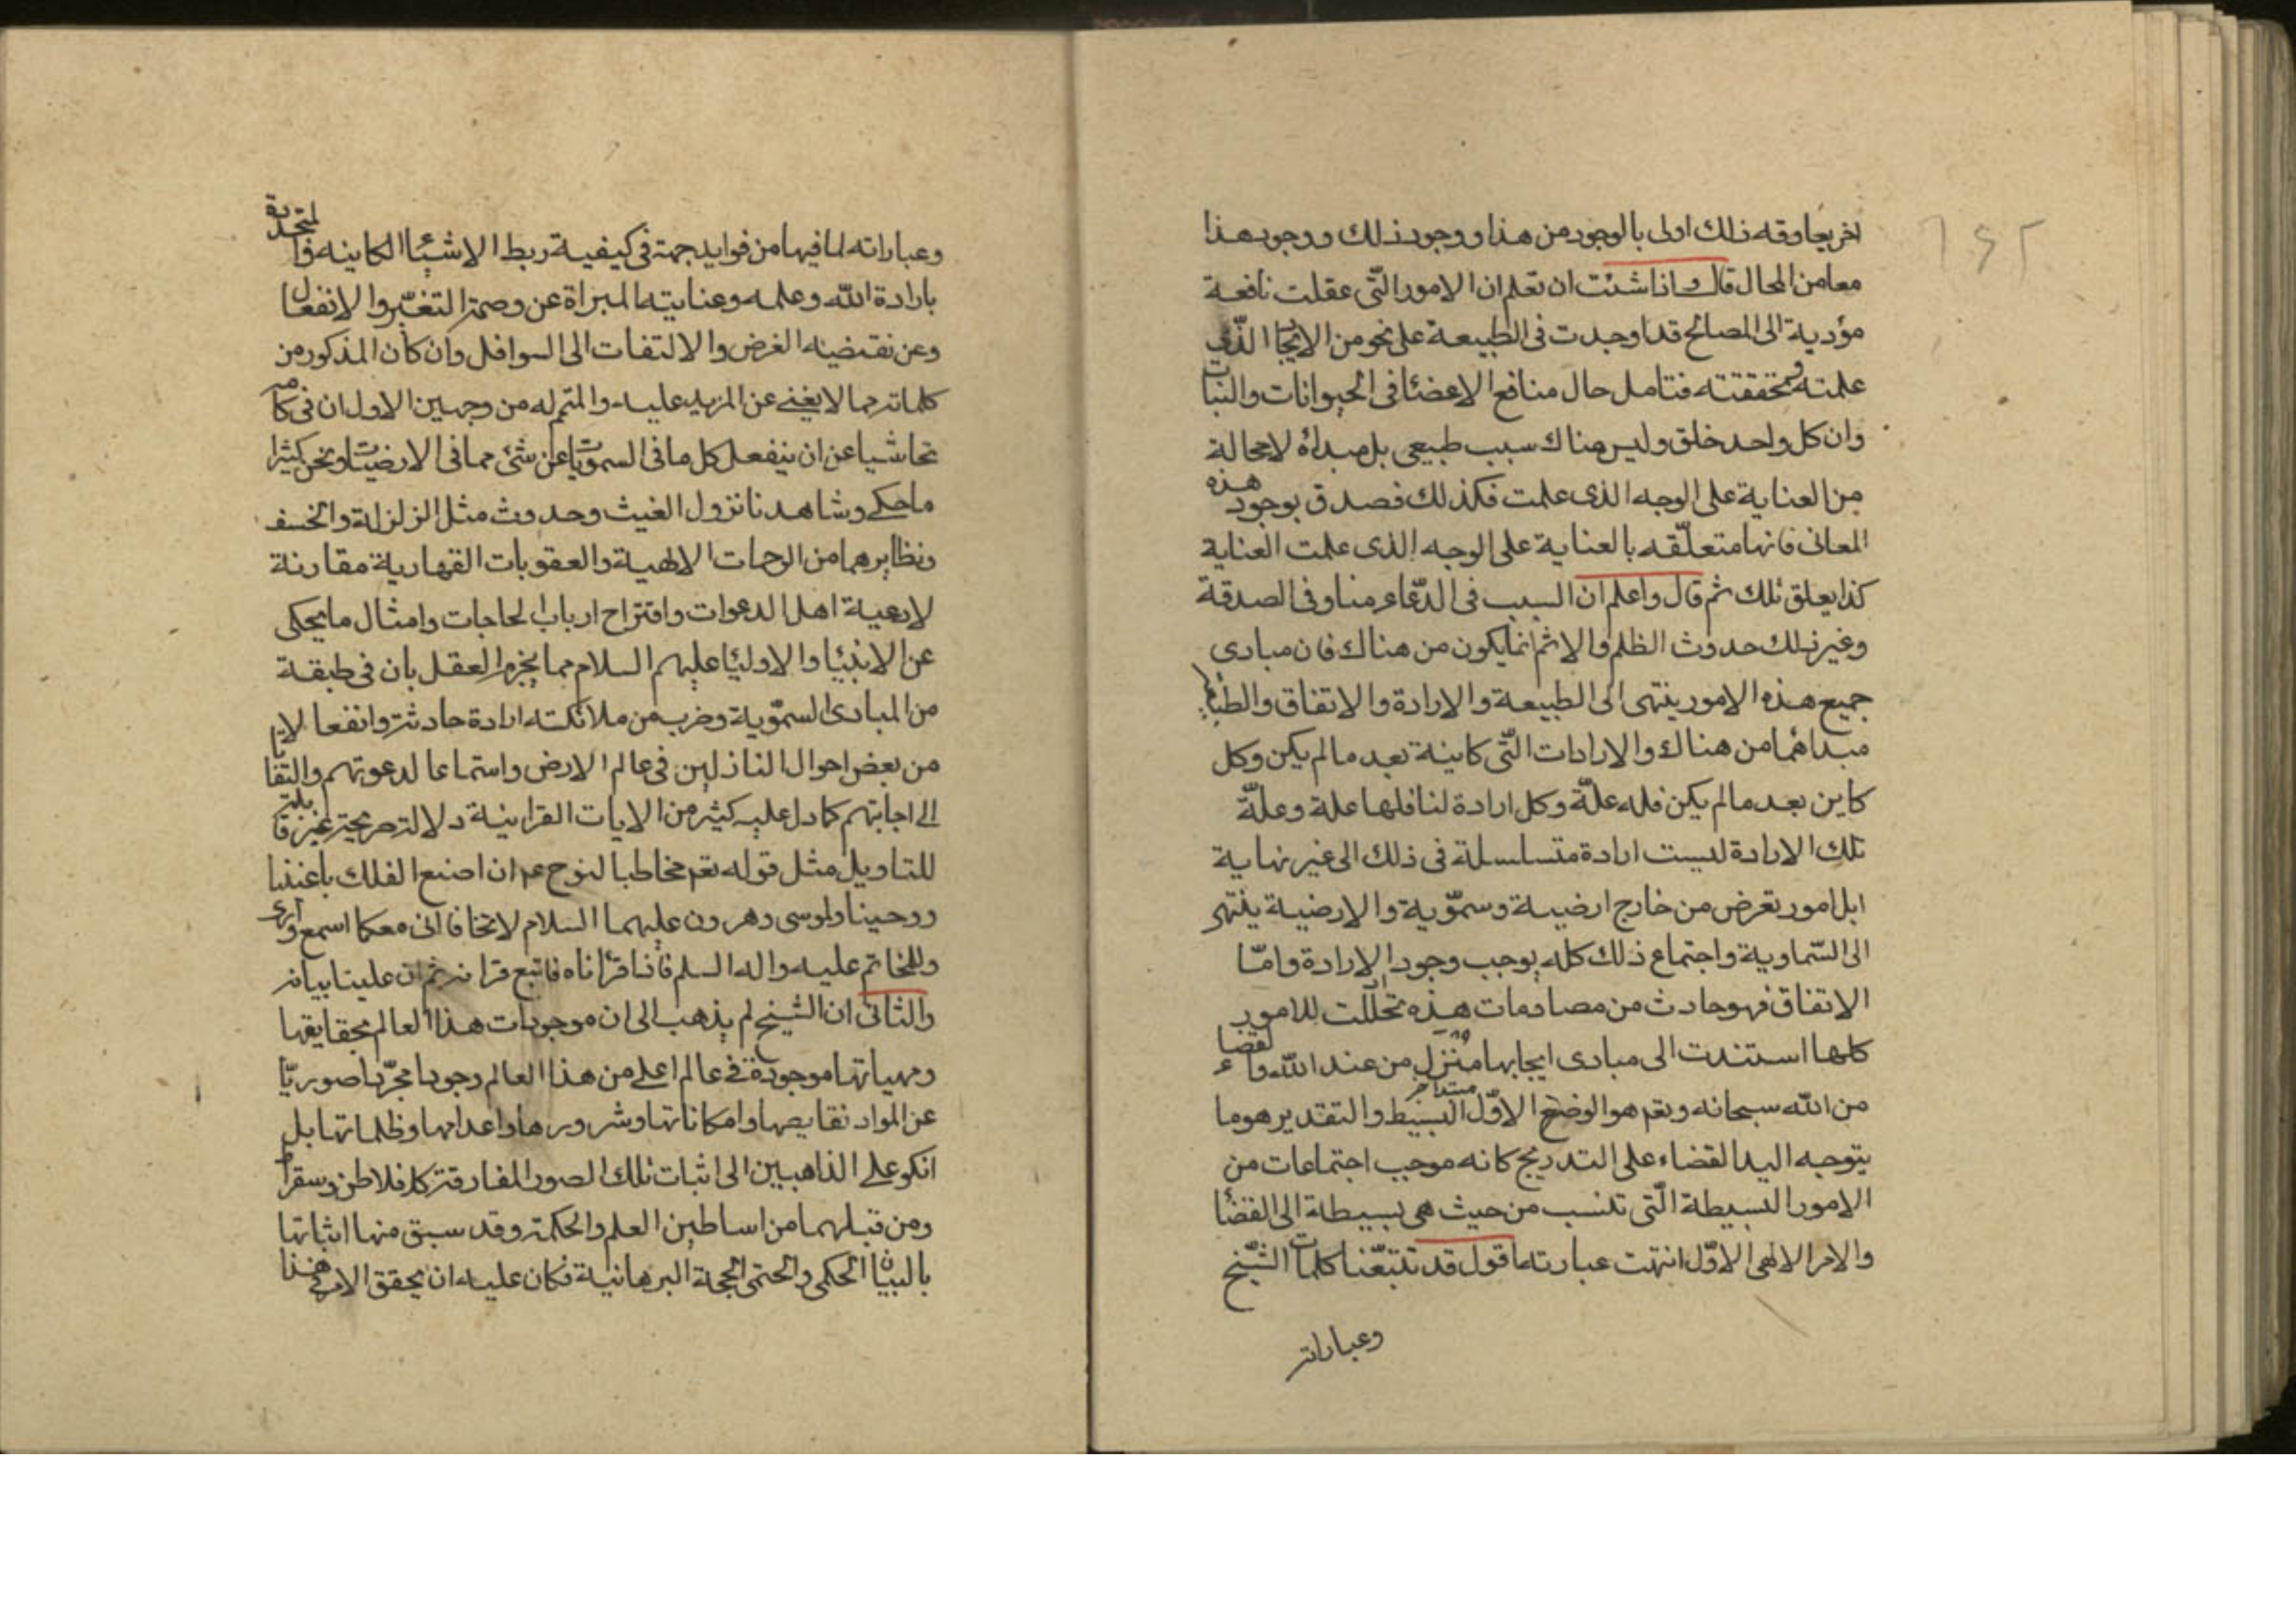 اخر يعاوقه ذلك اولى بالوجود من هذا ووجود ذلك ووجود هذا
معا من المحال قال واذا شئت ان تعلم ان الامور التّى عقلت نافعة
مؤدية الى المصالح قد اوجدت فى الطبيعة على نحو من الايجاد الذّى
علمته وتحققته فتامل حال منافع الاعضاء فى الحيوانات والنبات
وان كل واحد خلق وليس هناك سبب طبيعى بل مبدأه لا محالة
من العناية على الوجه الذى علمت فكذلك فصدق بوجود هذه
المعانى فانها متعلّقه بالعناية على الوجه الذى علمت العناية
كذا يعلق تلك ثم قال واعلم ان السبب فى الدّعاء منا وفى الصدقة
وغير ذلك حدوث الظلم والاثم انما يكون من هناك فان مبادى
جميع هذه الامور ينتهى الى الطبيعة والارادة والاتفاق والطباع
مبدأهما من هناك والارادات التّى كاينة بعد ما لم يكن وكل
كاين بعد ما لم يكن فله علّة وكل ارادة لنا فلها علة وعلّة
تلك الارادة ليست ارادة متسلسلة فى ذلك الى غير نهاية
ابل امور تعرض من خارج ارضية وسمّوية والارضية ينتهى
الى السّماوية واجتماع ذلك كله يوجب وجود الارادة وامّا
الاتفاق فهو حادث من مصادمات هذه تحلّلت للامور
كلها استندت الى مبادى ايجابها منزل من عند الله والقضاء
من الله سبحانه وتعم هو الوضع الاوّل البسيط والتقدير هو ما
يتوجه اليه القضاء على التدريج كانه موجب اجتماعات من
الامور البسيطة الّتى تنسب من حيث هى بسيطة الى القضاء
والامر الالهى الاوّل انتهت عبارته اقول قد تتبّعنا كلمات الشّيخ
وعباراته
وعباراته لما فيها من فوايد جمة فى كيفية ربط الاشياء الكاينه والمتجددة
بارادة الله وعلمه وعنايته المبراة عن وصمة التغيّر والانفعال
وعن نقيضية الغرض والالتفات الى السوافل وان كان المذكور من
كلماته مما لا يغنى عن المزيد عليه والمتمم له من وجهين الاول ان فى كلامه
تحاشيا عن ان ينفعل كل ما فى السمويات عن شئ مما فى الارضيات ونحن كثيرا
ما حكى وشاهدنا نزول الغيث وحدوث مثل الزلزلة والخسف
ونظايرهما من الرحمات الالهية والعقوبات القهارية مقارنة
لادعية اهل الدعوات واقتراح ارباب الحاجات وامثال ما يحكى
عن الانبياء والاولياء عليهم السلام مما يجزم العقل بان فى طبقة
من المبادى السمّوية وضرب من ملائكته ارادة حادثة وانفعالا ما
من بعض احوال النازلين فى عالم الارض واستماعا لدعوتهم والتفاتا
الى اجابتهم كما دل عليه كثير من الايات القرانية دلالة صريحة غير قابلة
للتاويل مثل قوله تعم مخاطبا لنوح عم ان اصنع الفلك باعيننا
ووحينا ولموسى وهرون عليهما السلام لا تخافا انى معكما اسمع وارى
وللخاتم عليه واله السلم فاذا قرأناه فاتبع قرانه ثم ان علينا بيانه
والثانى ان الشيخ لم يذهب الى ان موجودات هذا العالم بحقايقها
ومهياتها موجودة فى عالم اعلى من هذا العالم وجودا مجرّدا صوريّا
عن المواد نقايصها وامكاناتها وشرورها واعدامها وظلماتها بل
انكر على الذاهبين الى اثبات تلك الصور المفارقة كافلاطن وسقراط
ومن قبلهما من اساطين العلم والحكمة وقد سبق منها اثباتها
بالبيان الحكمى والحتمى الحجة البرهانية فكان عليه ان يحقق الامر فى هذا